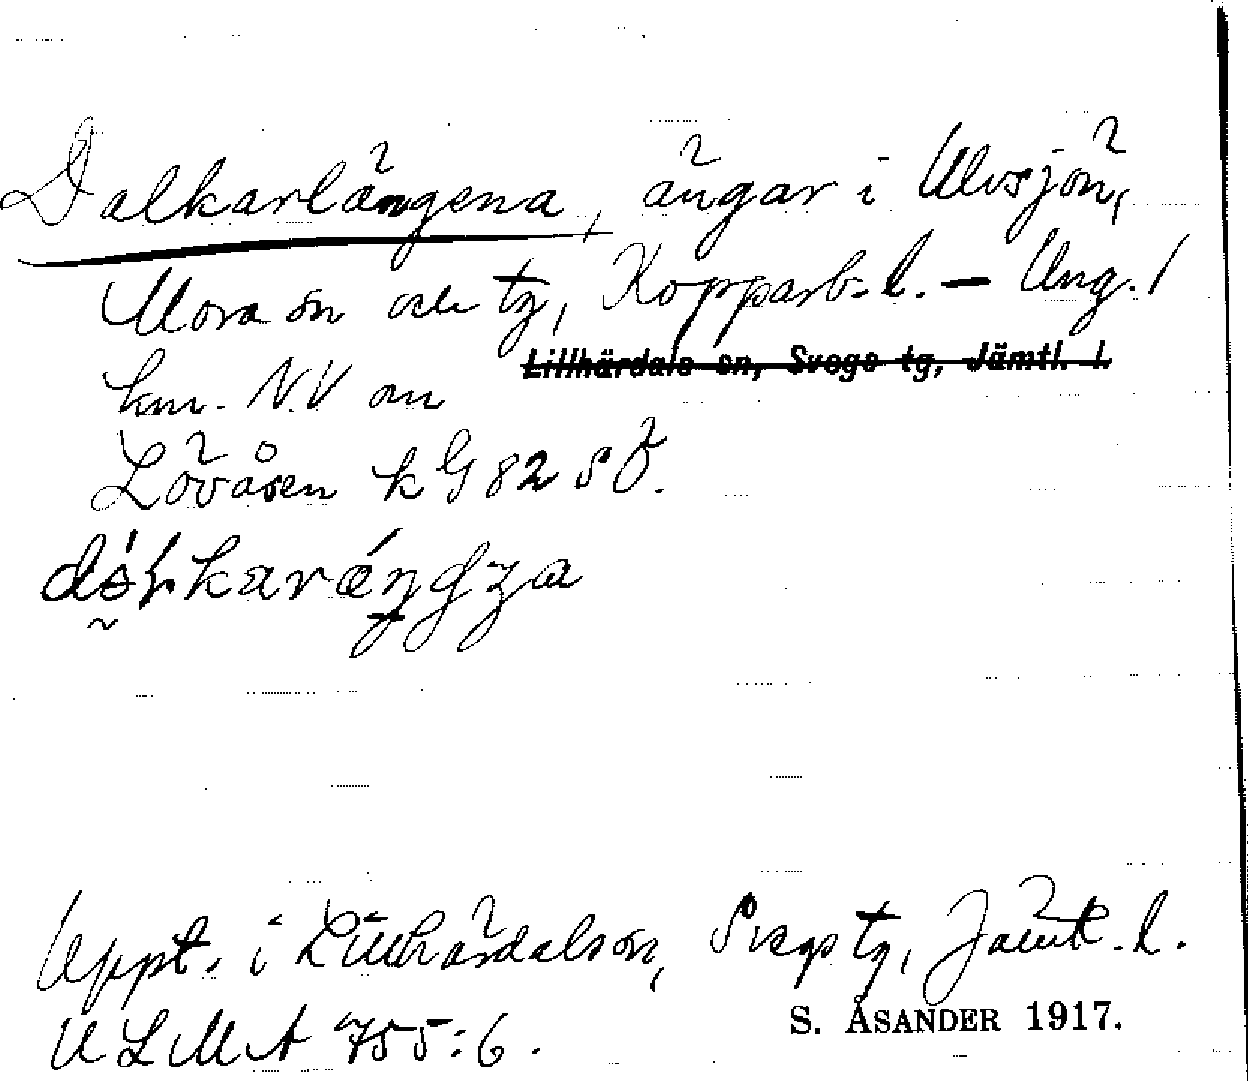 Dalkarlängena, ängar i Ulvsjön,
Mora sn och tg, Kopparb. l. – Ung. 1
Lillhärdals sn, Svegs tg, Jämtl. l.
km. N.V om
Lövåsen k G 82 s Ö.
Uppt. i Lillhärdals sn, Svegs tg, Jämtl. l.
ULMA 755:6.
S. ÅSANDER 1917.